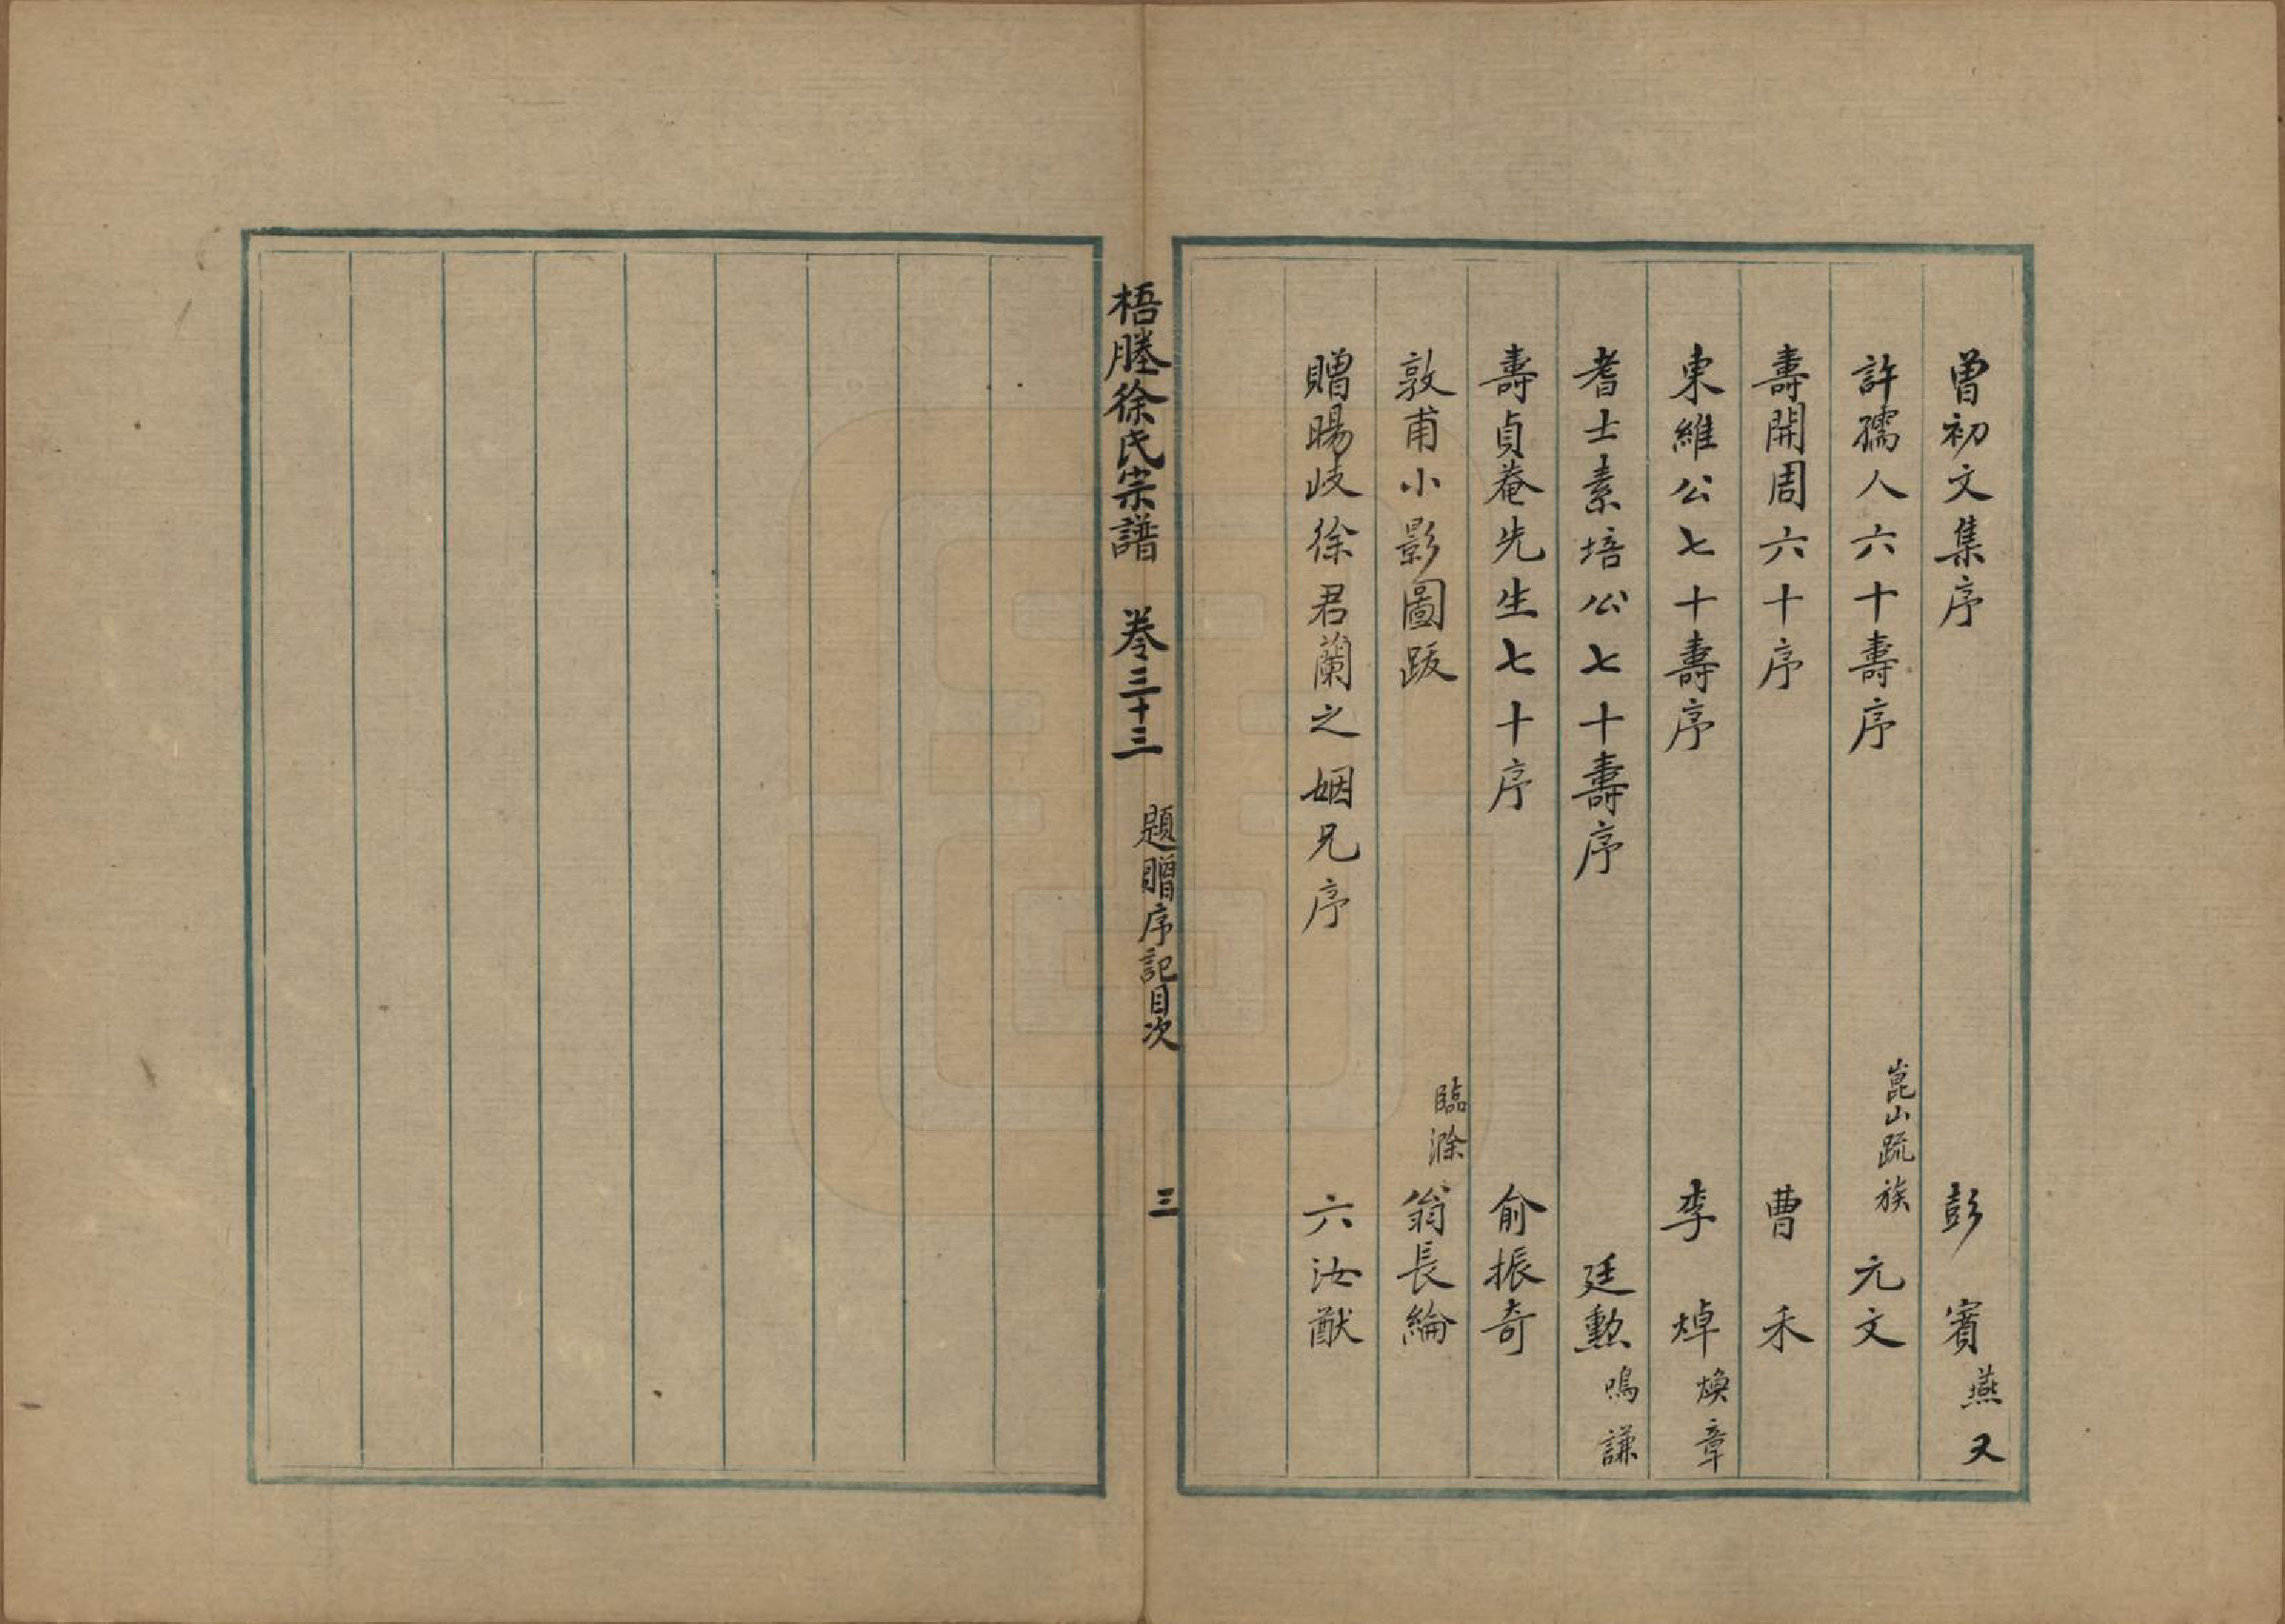 曾初文集序　彭賓燕又
許孺人六十壽序　崑山疏族元文
壽開周六十序　曹禾
東維公七十壽序　李焯煥章
耆士素培公七十壽序　廷勲鳴謙
壽貞菴先生七十序　俞振奇
敦甫小影圖跋　臨滁翁長綸
贈暘岐徐君蘭之姻兄序　六汝猷
梧塍徐氏宗譜　卷三十三　題贈序記目次　三